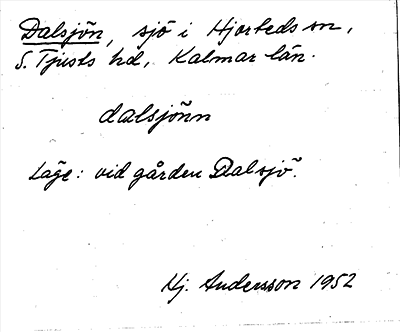 Dalsjön, sjö i Hjorteds sn,
S. Tjusts hd, Kalmar län.
dalsjönn
Läge: vid gården Dalsjö.
Hj. Andersson 1952